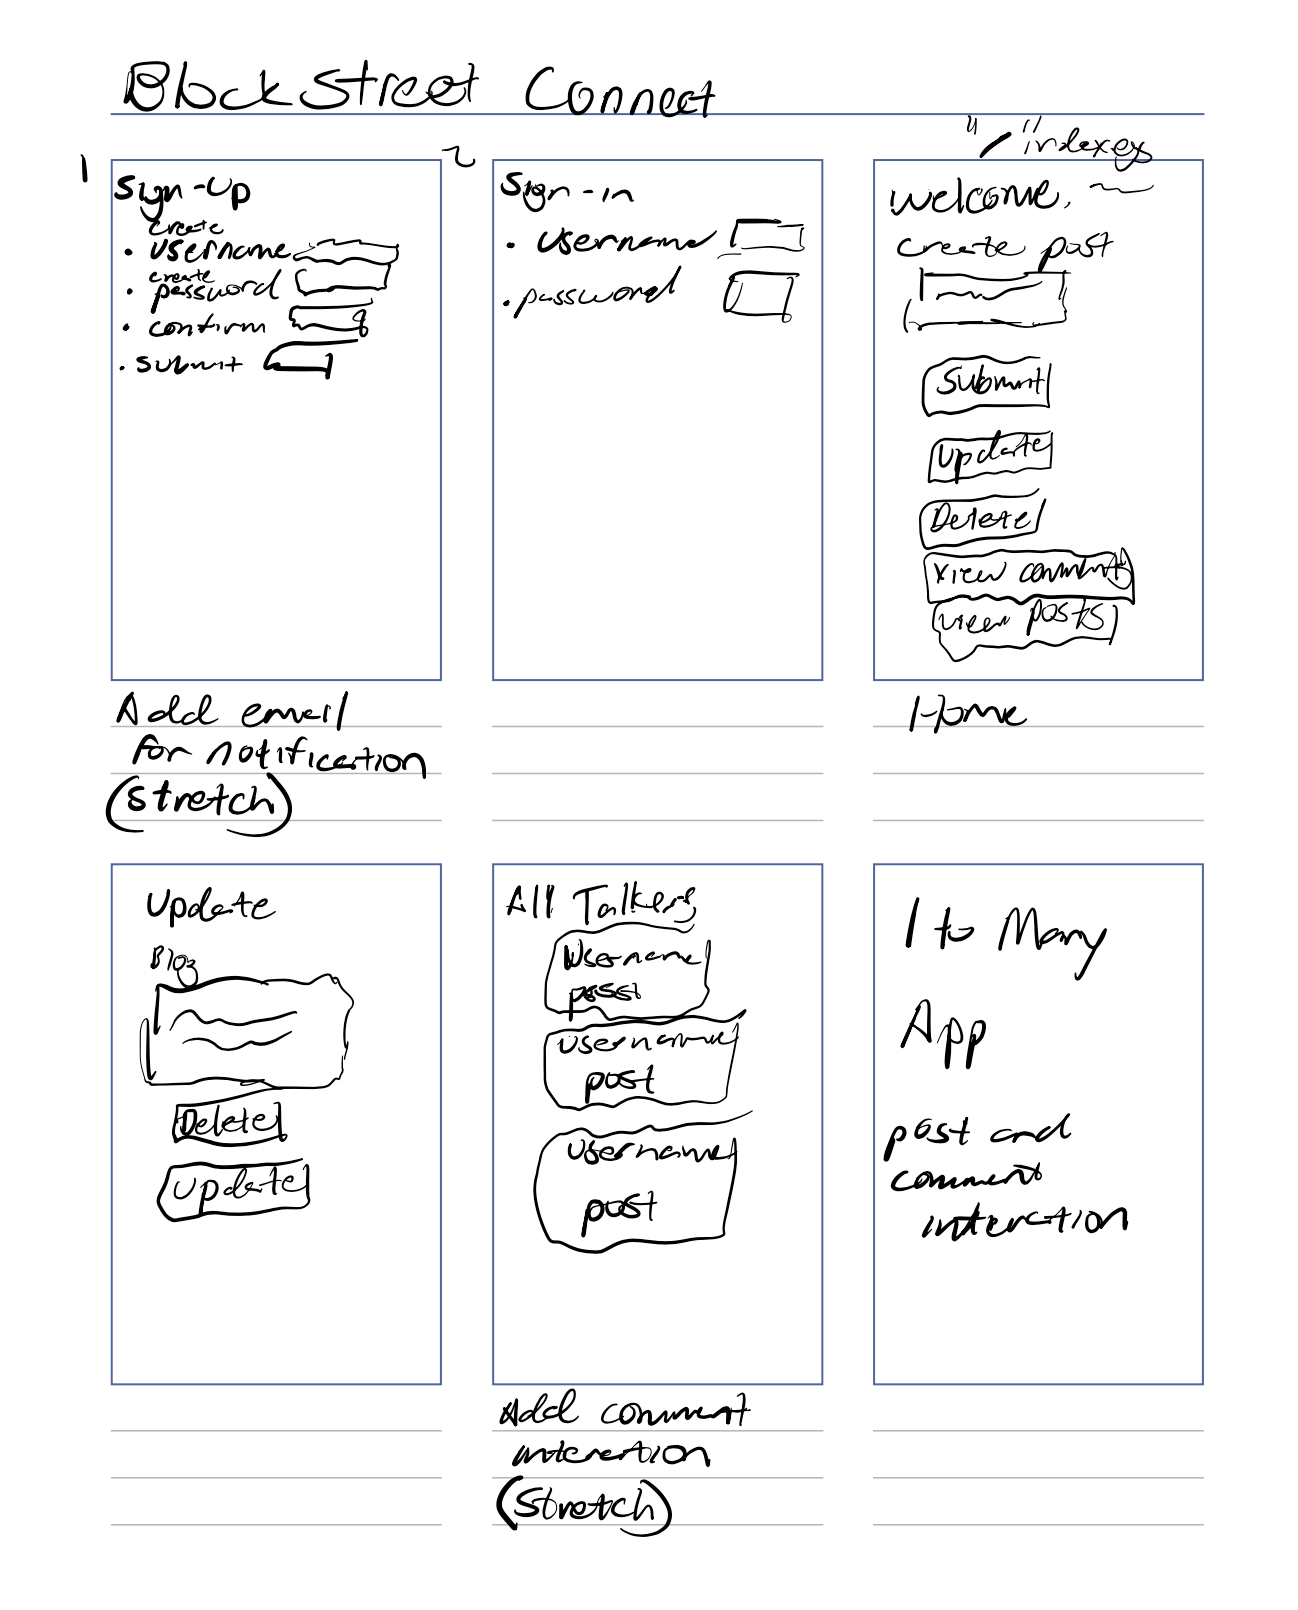 Block Street Connect
1
Sign-Up
create
• username
create
• password
• confirm
• submit
Add email
for notification
(stretch)
2
Sign-in
• username
• password
"/" index
Welcome,
create post
Submit
Update
Delete
view comments
view posts
Home
Update
Blog
Delete
Update
All Talkers
Username
post
username
post
username
post
Add comment
interaction
(Stretch)
1 to Many
App
post and
comment
interaction